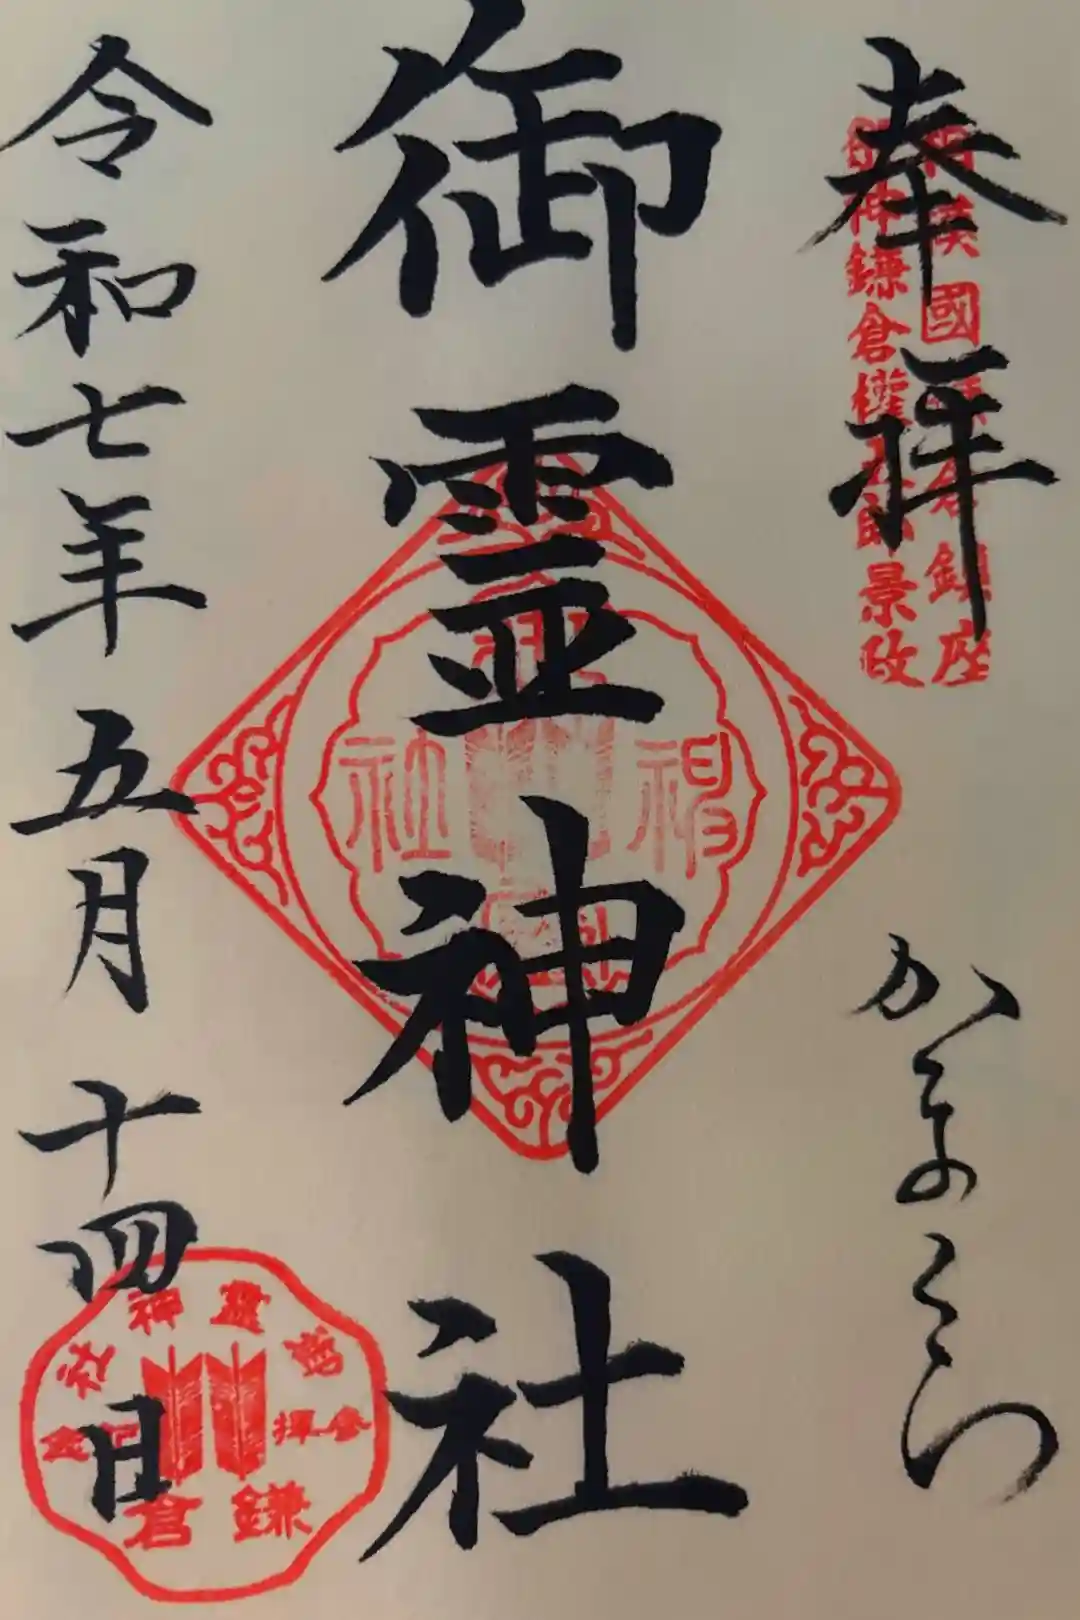 奉拝
相模國鎌倉鎮座
御神鎌倉権五郎景政
かまくら
御霊神社
神社
令和七年五月十四日
御霊神社
参拝
鎌倉